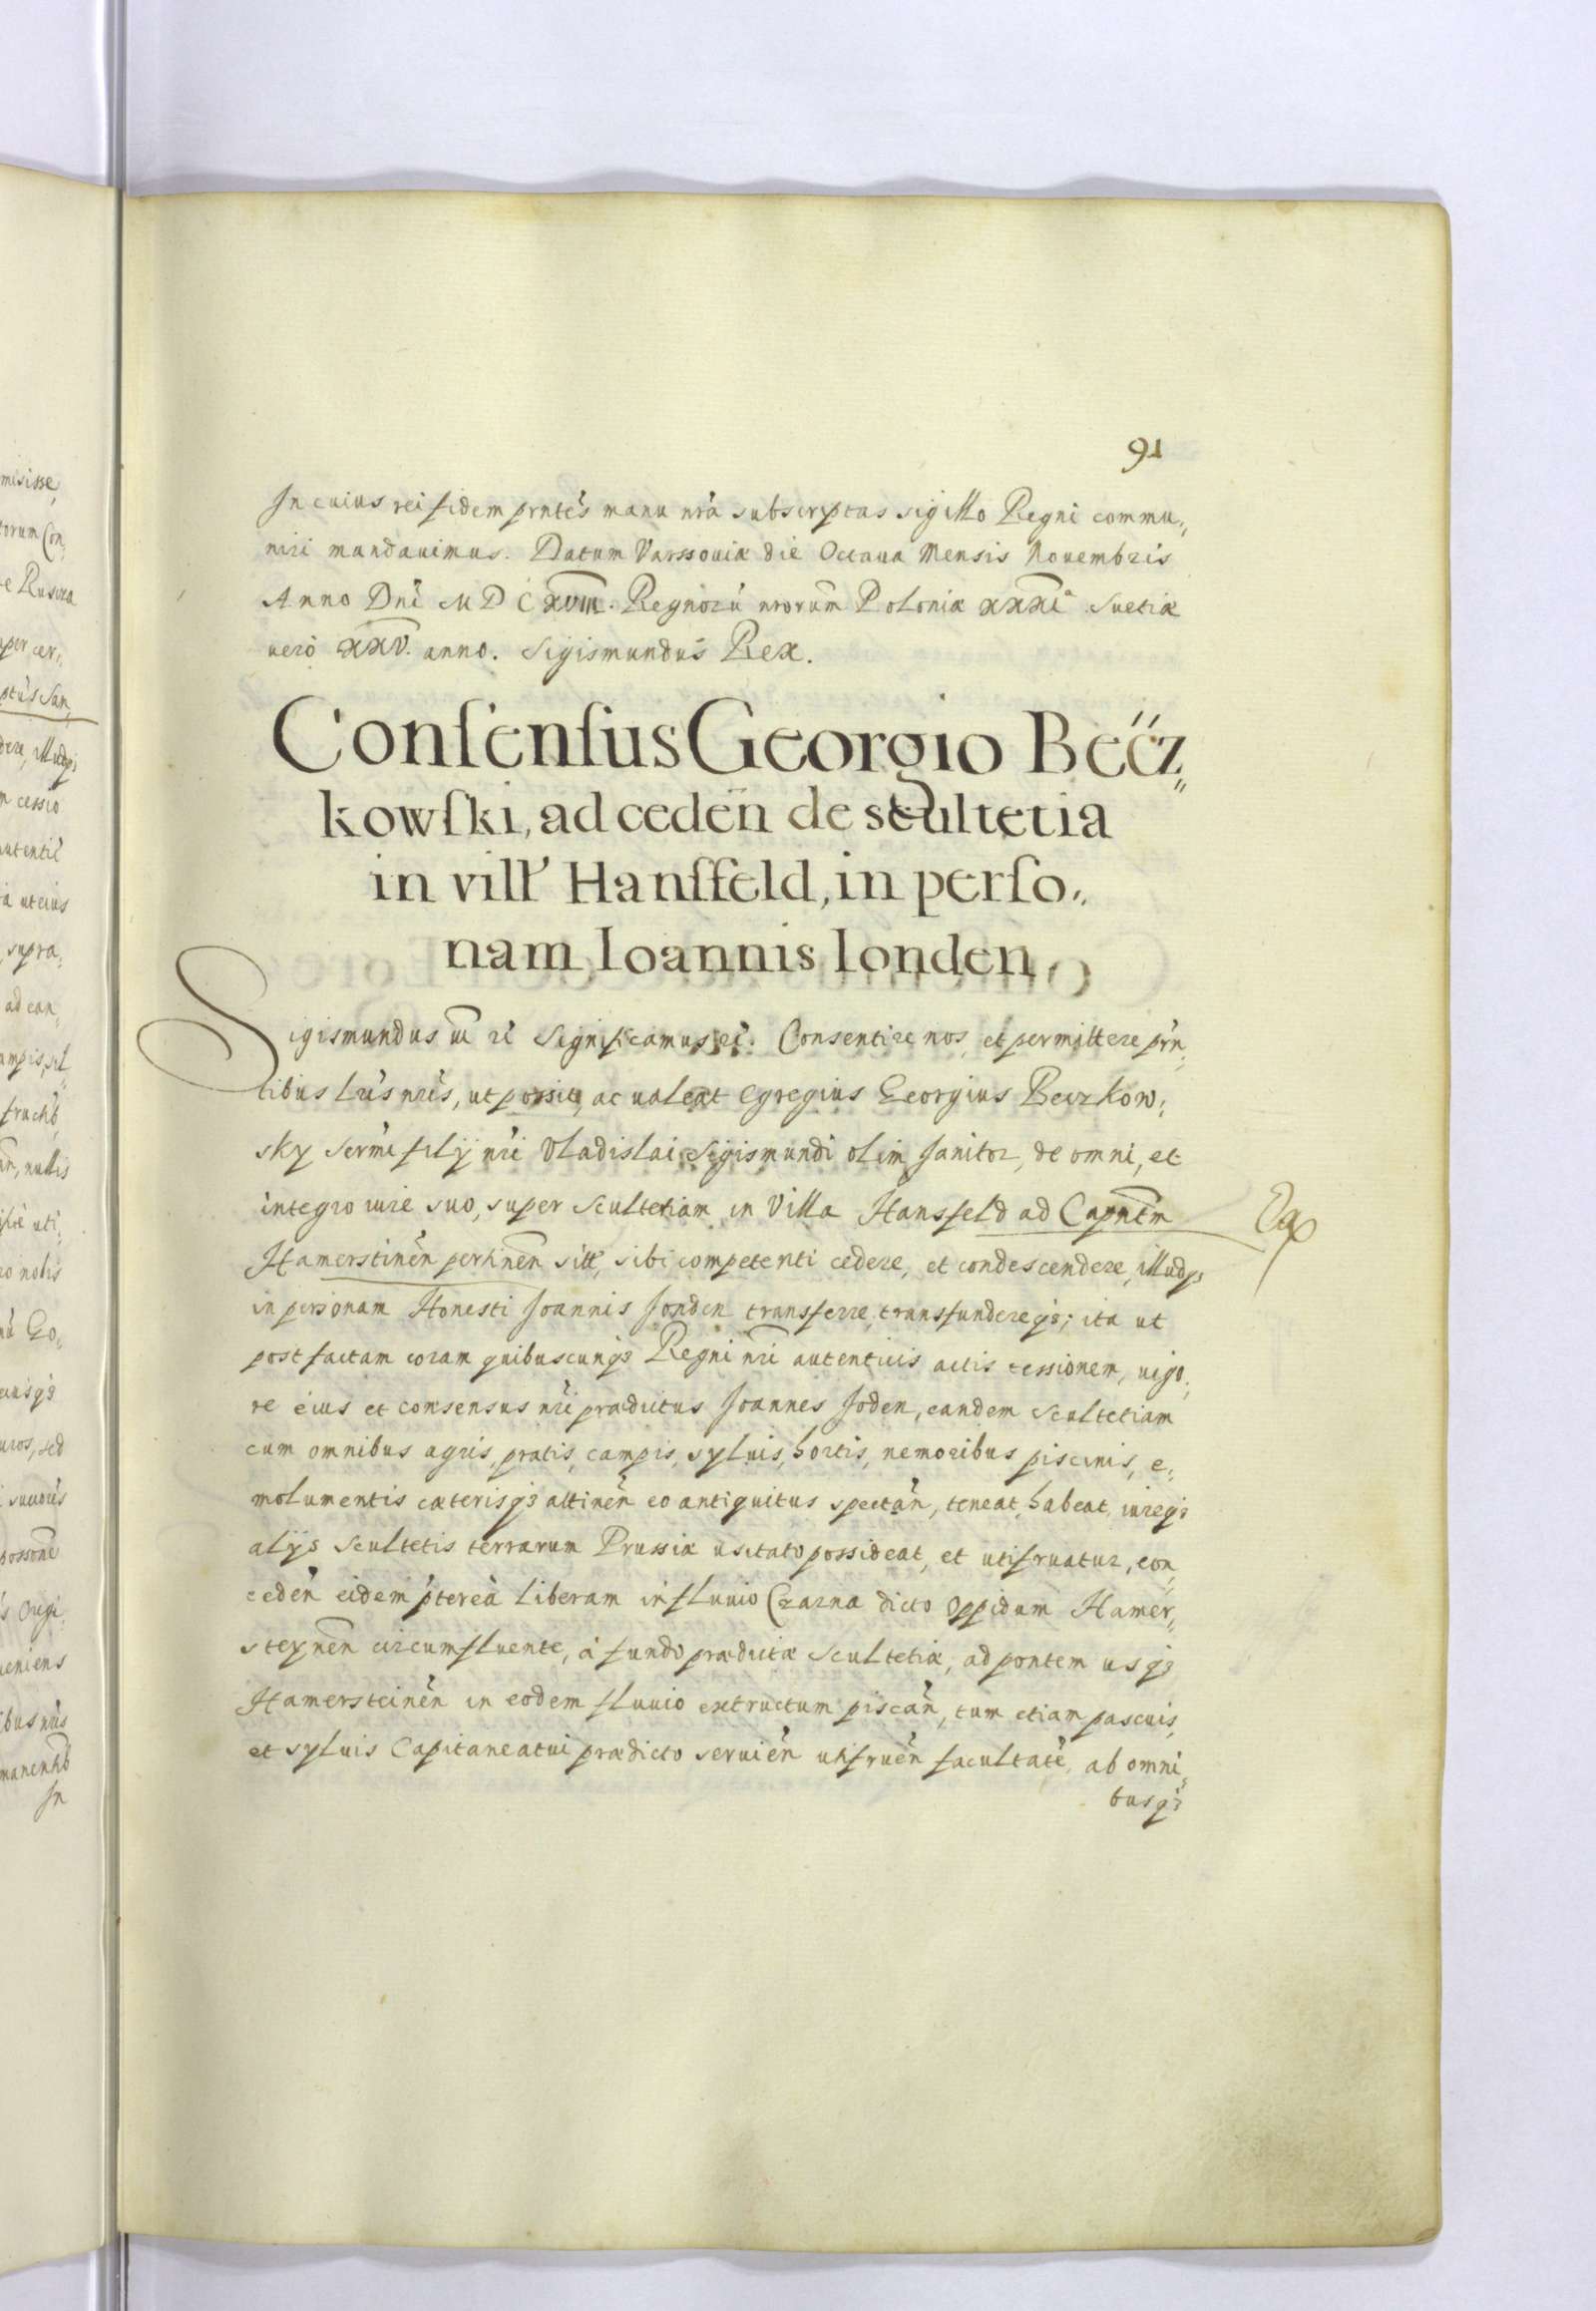 91
In cuius rei fidem prntes manu nra subscriptas sigillo Regni commu„
niri mandauimus. Datum Varssouiæ die Octaua Mensis Nouembris
Anno Dni MDCXVIII. Regnorū nrorum Poloniæ XXXI Suetiæ
uero XXV. anno. Sigismundus Rex.
Consensus Georgio Becz„
kowski, ad ceden de scultetia
in vill Hansfeld, in perso„
nam Ioannis Ionden
Sigismundus III ri Significamus ec. Consentire nos, et permittere prn„
tibus lris nris, ut possit, ac ualeat Egregius Georgius Beczkow„
sky Sermi filij nri Vladislai Sigismundi olim Janitor, de omni, et
integro iure suo, super Scultetiam in Villa Hansfeld ad Capntm
Cap
Hamerstinen pertinen sitt, sibi competenti cedere, et condescendere, illudq3
in personam Honesti Joannis Jonden transferre, transfundereq3; ita ut
post factam coram quibuscunq3 Regni nri autenticis actis cessionem, uigo„
re eius et consensus nri prædictus Joannes Joden, eandem Scultetiam
cum omnibus agris, pratis, campis, syluis, hortis, nemoribus piscinis, e„
molumentis cæterisq3 attinen eo antiquitus spectan, teneat, habeat, iureq3
alijs Scultetis terrarum Prussiæ usitato possideat, et utifruatur, con„
ceden eidem pterea liberam in fluuio Czarna dicto Oppidum Hamer„
steynen circumfluente, à fundo prædictæ Scultetiæ, ad pontem usq3
Hamersteinen in eodem fluuio extructum piscan, tum etiam pascuis,
et syluis Capitaneatui prædicto seruien utifruen facultate, ab omni„
busq3
mesisse,
Rusica
per cer„
San„
cessio
ut eius
supra„
ad ean„
ampis, sil„
nullis
uti„
nobis
Eo„
sed
Origi„
ueniens
In